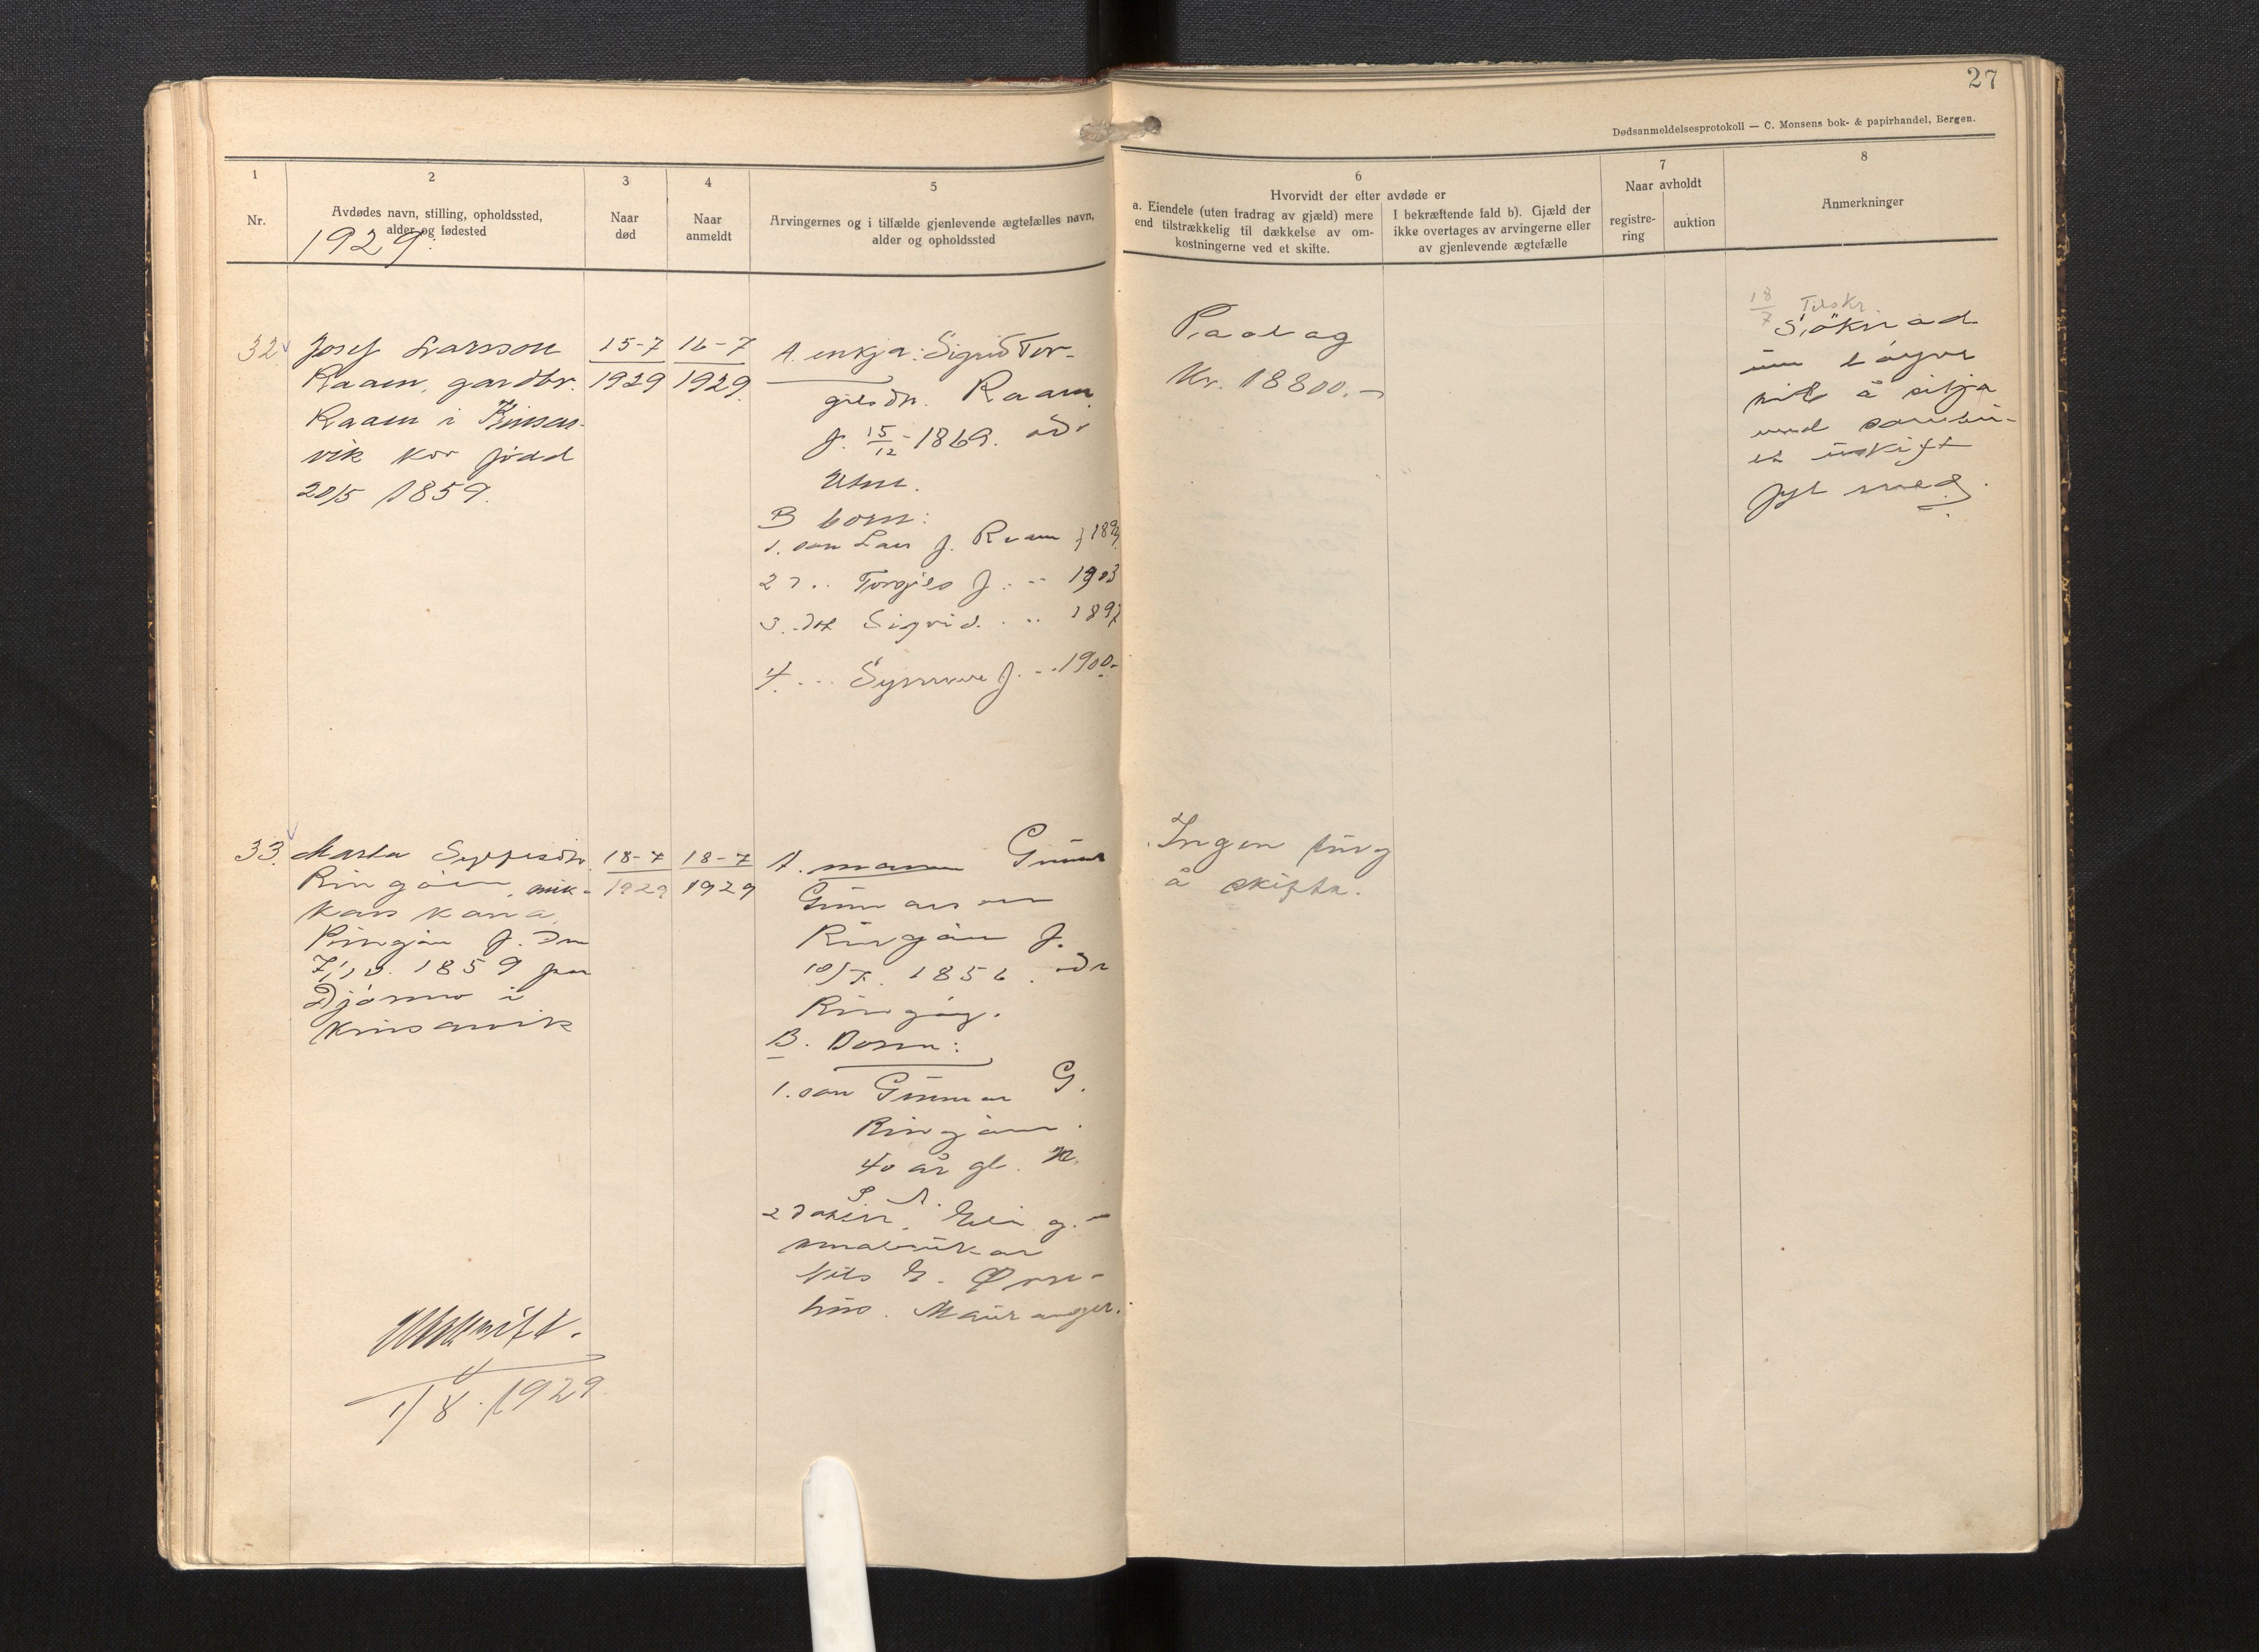 27
Dødsanmeldelsesprotokoll — C. Monsens bok- & papirhandel, Bergen.
1
Nr.
2
Avdødes navn, stilling, opholdssted,
alder og fødested
1929.
3
Naar
død
4
Naar
anmeldt
5
Arvingernes og i tilfælde gjenlevende ægtefælles navn,
alder og opholdssted
6
Hvorvidt der efter avdøde er
a. Eiendele (uten fradrag av gjæld) mere
end tilstrækkelig til dækkelse av om-
kostningerne ved et skifte.
I bekræftende fald b). Gjæld der
ikke overtages av arvingerne eller
av gjenlevende ægtefælle
7
Naar avholdt
registre-
ring
auktion
8
Anmerkninger
32
Josef Larsson
Raaen, gardbr.
Raaen i Kinsar-
vik kor född
20/5 1859.
15-7
1929
16-7
1929
A. enkja: Sigrid Tor-
gilsdtr. Raaen
f. 15/12-1869. adr
Utne.
B born:
1. son Lars J. Raaen
2 Torgils J. 1903
3. dot Sigrid
4 Synnøve J. 1900
Paalag
Kr. 18800.-
18/7 Tilskr.
Söknad
um løyve
til å sitja
med sambu-
et uskift
33.
Marta
Ringöen
kars kona
Ringöen f. den
1859 paa
Djönno i
Kinsarvik
18-7
1929
18-7
1929
A. mann Gunnar
Gunnarson
Ringöen f.
1856. adr
Ringöy.
B. Born:
1. son Gunnar G.
Ringöen.
40 år gl.
2 g.
småbrukar
Nils
Mauranger.
Ingen ting
å skifta.
Utskrift.
1/8. 1929